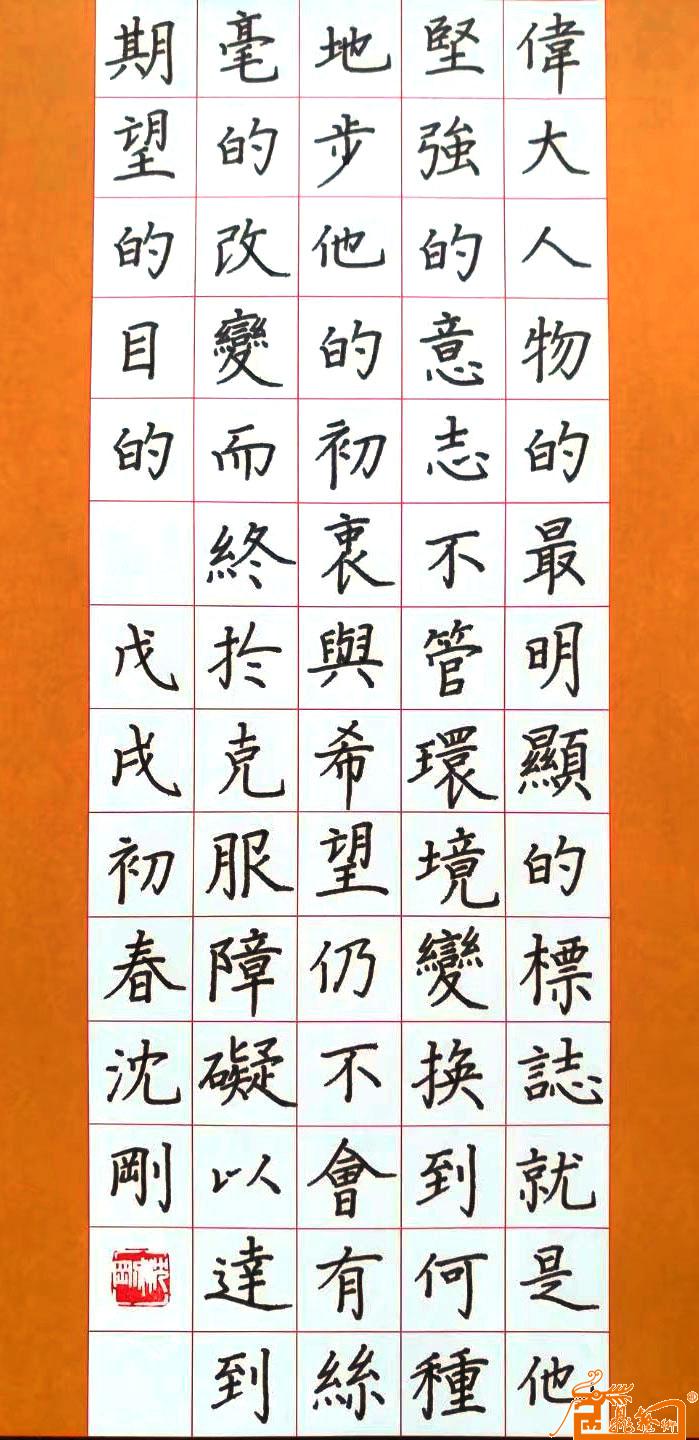 偉大人物的最明顯的標誌就是他
堅強的意志不管環境變換到何種
地步他的初衷與希望仍不會有絲
毫的改變而終於克服障礙以達到
期望的目的
戊戌初春沈剛